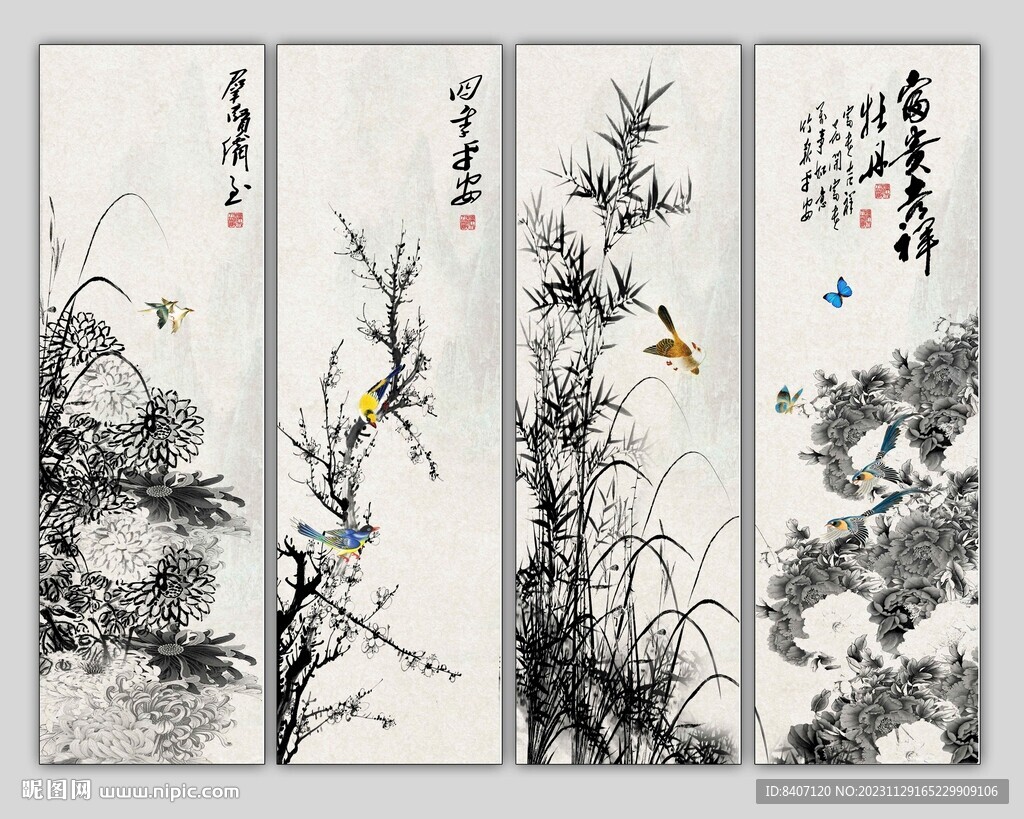 群賢濟至
四季平安
富贵吉祥
牡丹
富贵吉祥
花開富贵
萬事如意
竹報平安
昵图网 www.nipic.com
ID:8407120 NO:20231129165229909106